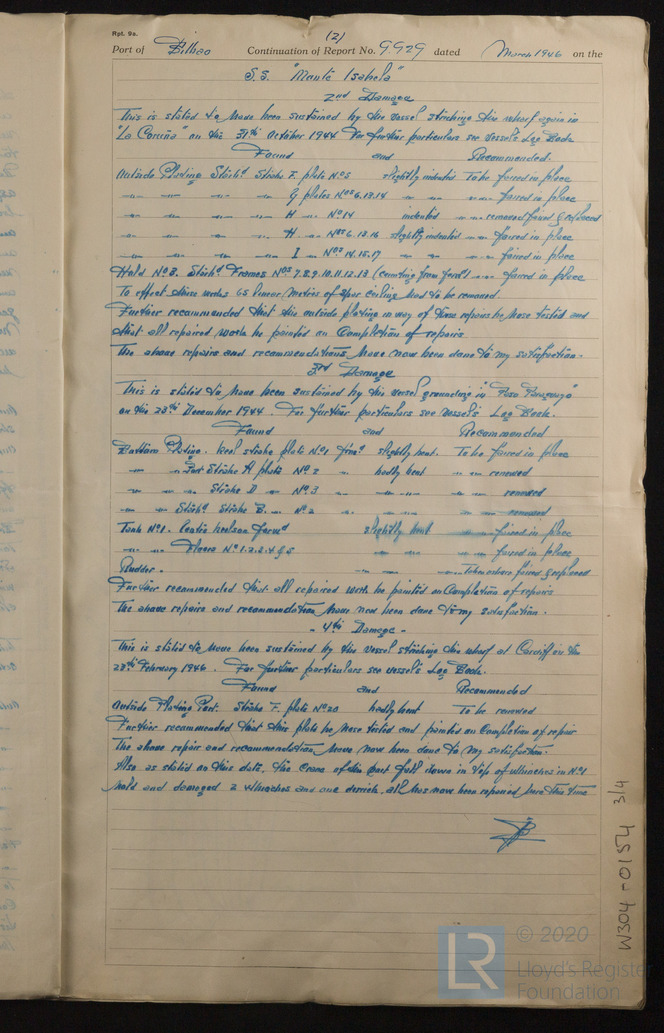 Rpt. 9a.
(2)
Port of Bilbao Continuation of Report No. 9.929 dated March 1946 on the
S.S. "Monte Isabela"
2nd Damage
This is stated to have been sustained by the vessel striking the wharf again in
"La Coruña" on the 31th October 1944. For further particulars see vessel's Log Book.
Found and Recommended.
Outside Plating Starbd Strake F. plate Nº5 slightly indented To be faired in place
G plates Nos 6.13.14 faired in place
H Nº14 indented removed faired & replaced
H. Nos 6.13.16 slightly indented faired in place
I Nos 14.15.17 faired in place
Hold Nº3. Starbd Frames Nos 7.8.9.10.11.12.13 (counting from forwd) faired in place
To effect these works 65 linear metres of spar ceiling had to be removed.
Further recommended that the outside plating in way of these repairs be hose tested and
that all repaired work be painted on Completion of repairs
The above repairs and recommendations have now been done to my satisfaction.
3rd Damage
This is stated to have been sustained by the vessel grounding in
on the 23th December 1944. For further particulars see vessel's Log Book.
Found and Recommended
Bottom Plating. Keel strake plate Nº1 slightly bent. To be faired in place
Port Strake A plate Nº2 badly bent renewed
Strake D Nº3 renewed
Starbd Strake B. Nº2 renewed
Tank Nº1. Centre keelson forwd slightly bent faired in place
Floors Nº1.2.3.4 & 5 faired in place
Rudder. faired & replaced
Further recommended that all repaired work be painted on Completion of repairs
The above repairs and recommendation have now been done to my satisfaction.
- 4th Damage -
This is stated to have been sustained by the vessel striking the wharf at Cardiff on the
23th February 1946. For further particulars see vessel's Log Book.
Found and Recommended
Outside Plating Port. Strake F. plate Nº20 badly bent To be renewed
Further recommended that this plate be hose tested and painted on Completion of repair
The above repair and recommendation have now been done to my satisfaction.
Also as stated on this date, the crane of the port fell down in top of winches in Nº1
hold and damaged 2 winches and one derrick, all has now been repaired here this time
W304-0154 3/4
LR
© 2020
Lloyd's Register
Foundation